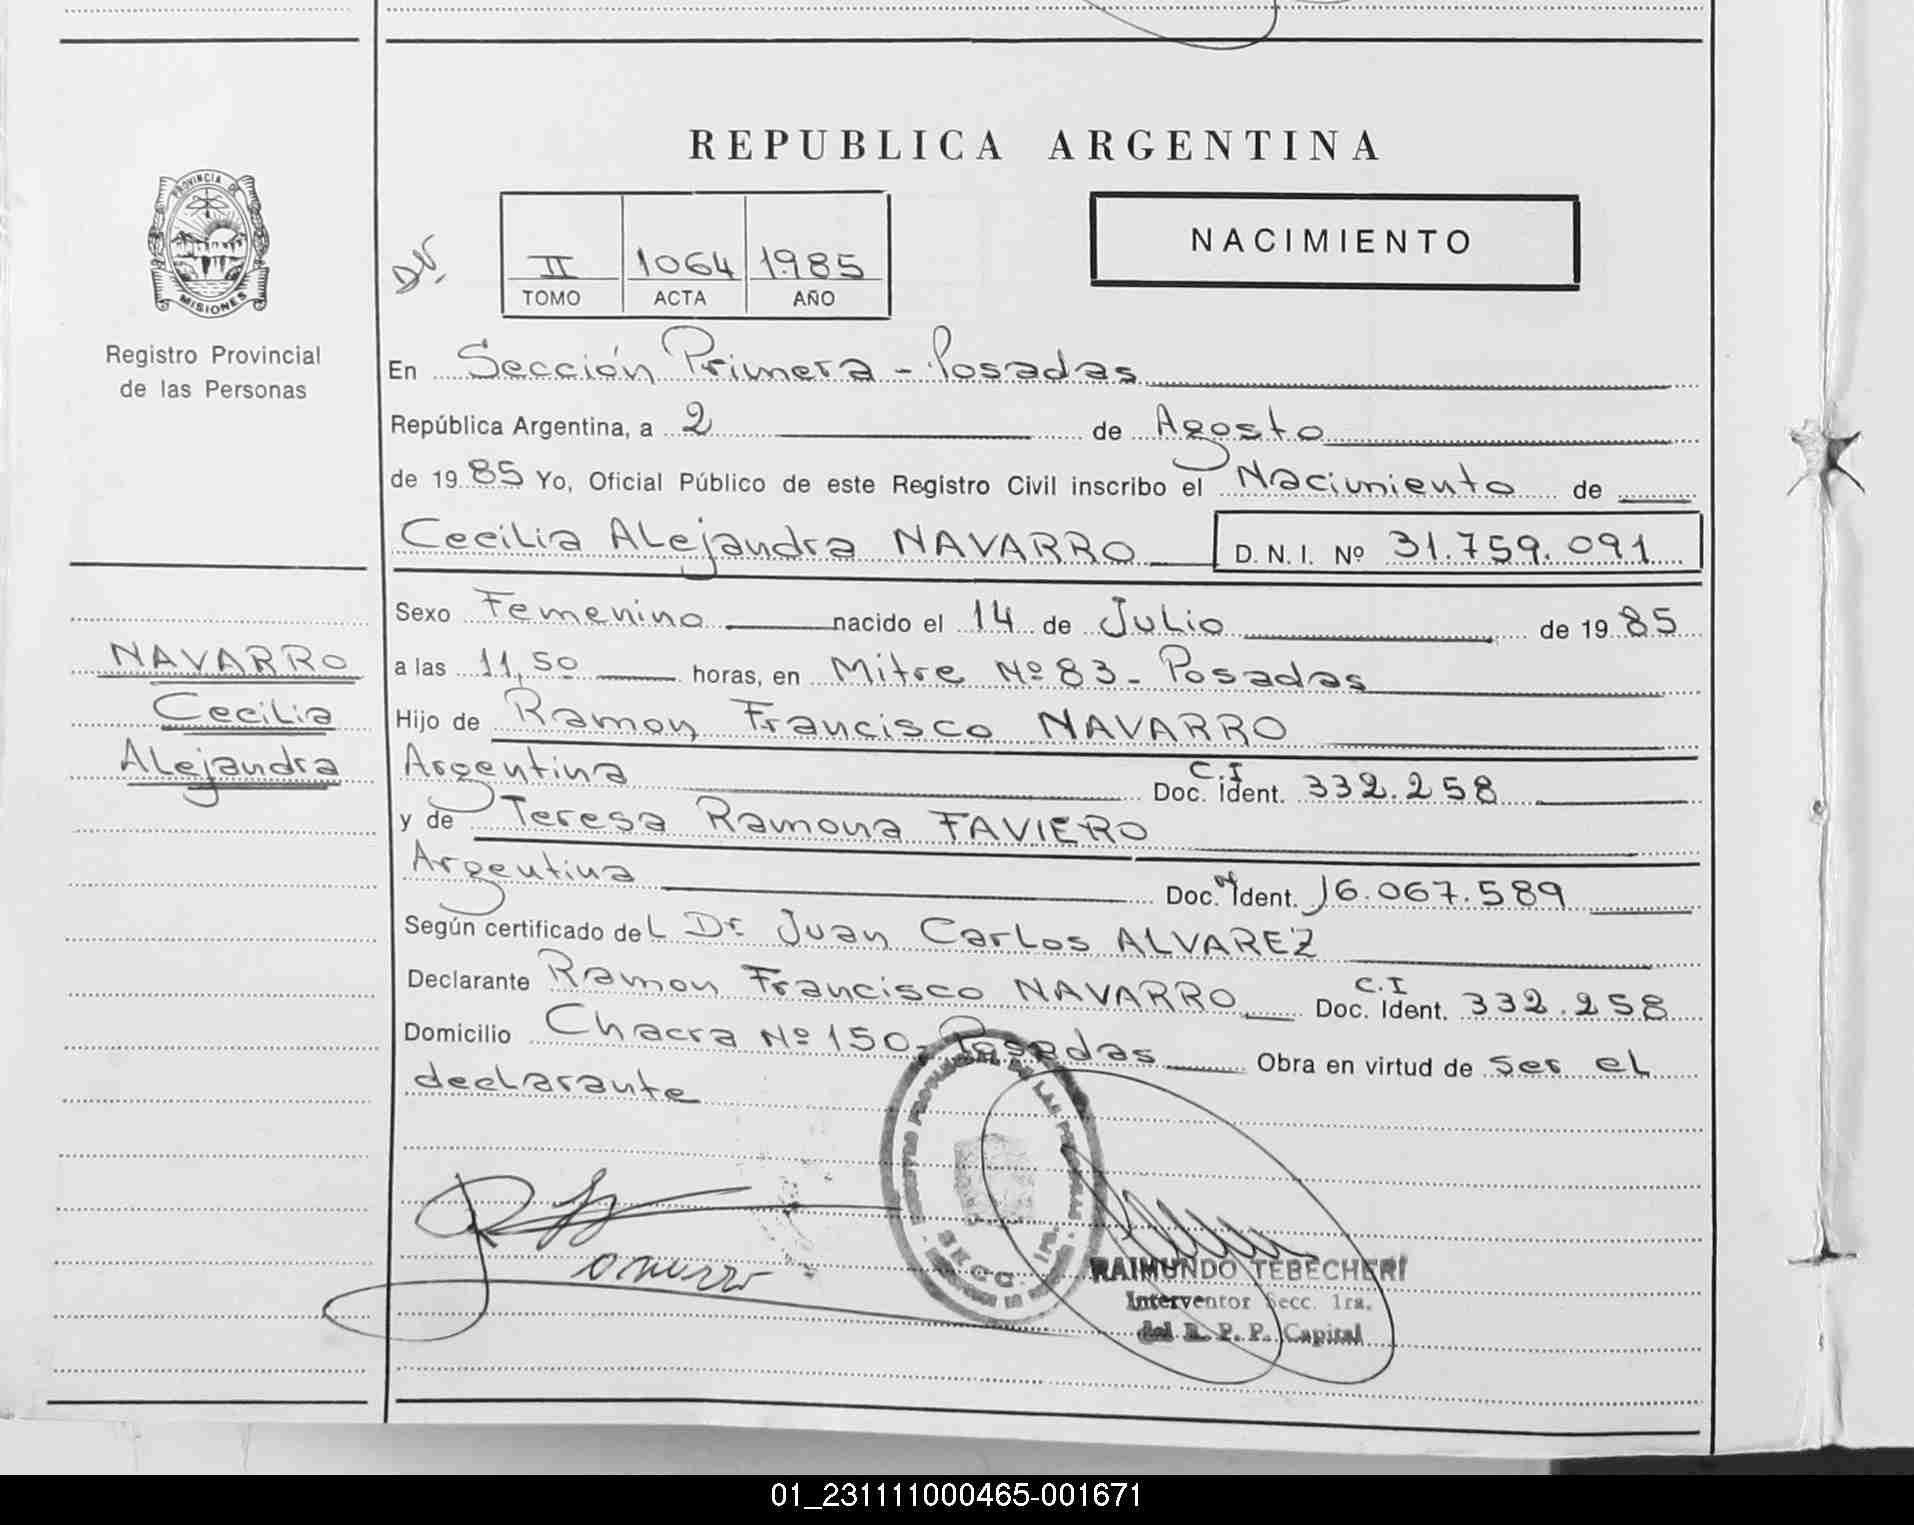 PROVINCIA DE
MISIONES
Registro Provincial
de las Personas
NAVARRO
Cecilia
Alejandra
REPUBLICA ARGENTINA
II 1064 1985
TOMO ACTA AÑO
NACIMIENTO
En Sección Primera - Posadas
República Argentina, a 2 de Agosto
de 1985 Yo, Oficial Público de este Registro Civil inscribo el Nacimiento de
Cecilia Alejandra NAVARRO D. N. I. Nº 31.759.091
Sexo Femenino nacido el 14 de Julio de 1985
a las 11,50 horas, en Mitre Nº 83 - Posadas
Hijo de Ramon Francisco NAVARRO
Argentina C.I Doc. Ident. 332.258
y de Teresa Ramona FAVIERO
Argentina Doc. Ident. 16.067.589
Según certificado del Dr. Juan Carlos ALVAREZ
Declarante Ramon Francisco NAVARRO C.I Doc. Ident. 332.258
Domicilio Chacra Nº 150 - Posadas Obra en virtud de ser el
declarante
RAIMUNDO TEBECHERI
Interventor Secc. 1ra.
del R. P. P. Capital
01_231111000465-001671